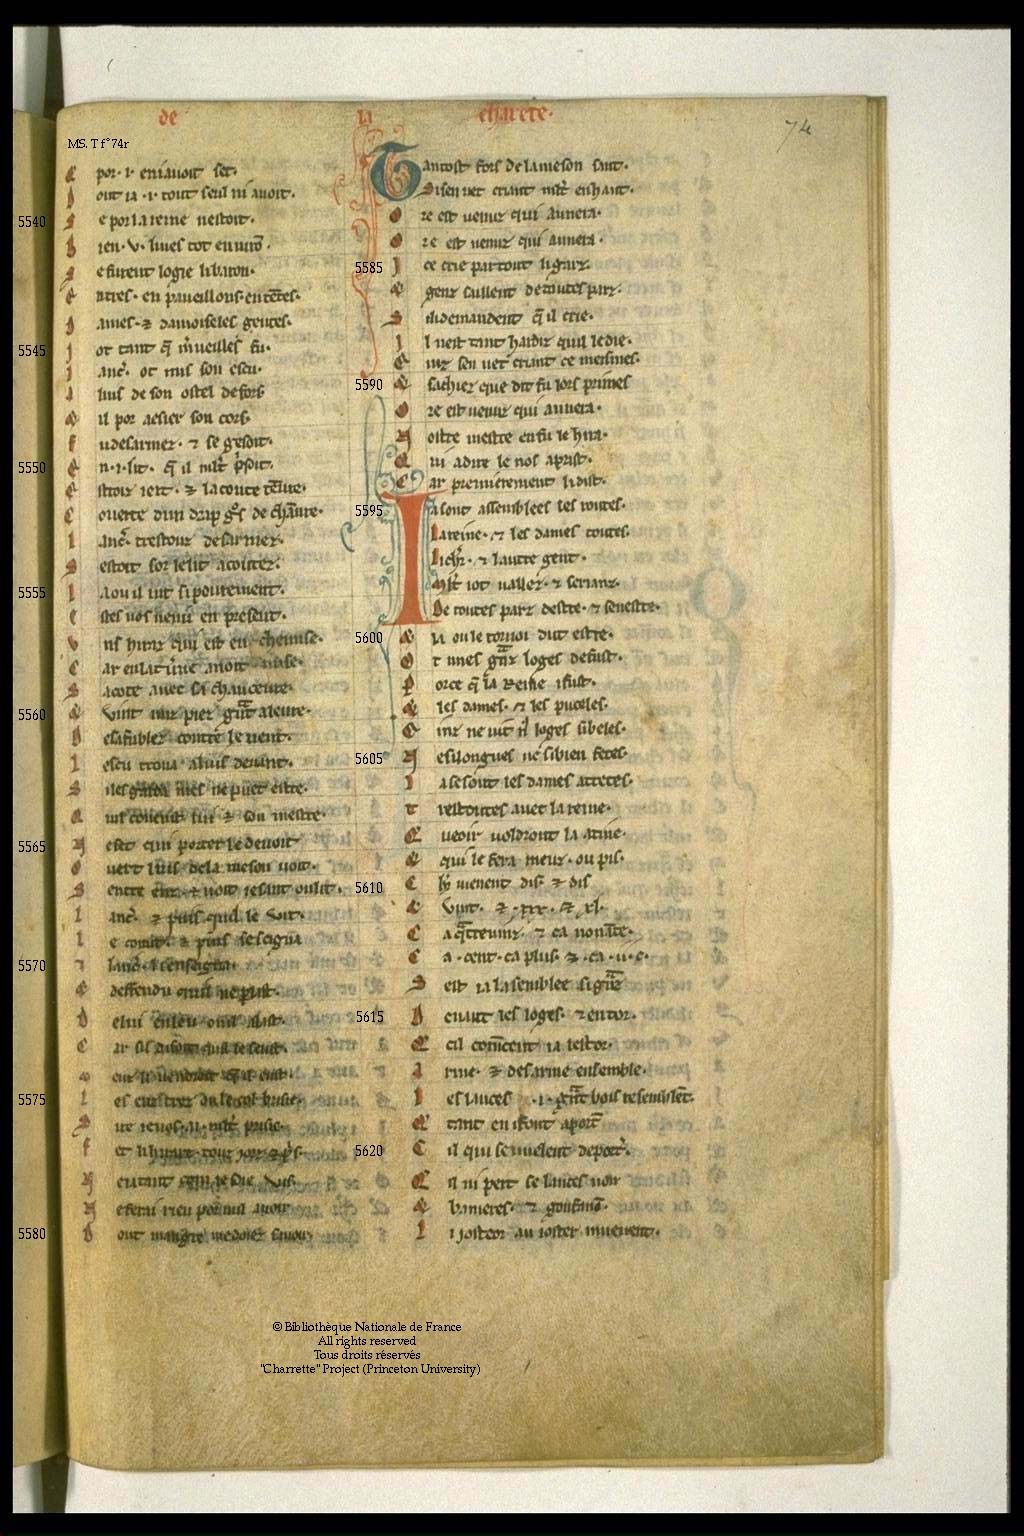 de la charete.
MS. T f° 74r
74
E por .i. en i auoit set.
D ont ia .i. tout seul ni auoit.
5540 S e por la reine nestoit.
B ien .v. liues tot enuirõ
S e furent logie li baron.
E ntres. en paueillons. en tētes.
D ames. & damoiseles gentes.
5545 I ot tant q̃ m̃ueilles fu.
L anc̃. ot mis son escu.
A luis de son ostel defors
& il por aesier son cors.
F u desarmez. & se gesoit.
5550 E n .i. lit. q̃ il mlt p̃soit.
E stroiz iert. & la coute tēue.
C ouerte dun drap g̊s de chãure.
L anc̃. trestouz desarmez.
S estoit sor le lit acoutez.
5555 L a ou il iut si pourement.
E stes vos uenu en present.
V ns hiraz qui est en chemise.
C ar en la tũne auoit mise.
S a cote auec sa chauceure.
5560 & vint nuz piez g̃nt aleure.
D esafublez contre le uent.
L escu troua a luis deuant.
S iles garda mes ne puet estre.
Q uil conenut lui & son mestre.
5565 N eset qui porter le deuoit
O uert luis de la meson uoit.
S entre enz & uoit iesant ou lit.
L anc̃. & puis quil le vit.
L e connut. & puis se seigna
5570 7 lanc̃. lenseigna.
& deffendu quil ne parlast.
D e lui en leu ou il alast.
C ar sil disoit quil le seust.
M euz li uendroit q̃ il eust.
5575 L es euz trez ou le col brisie.
S ire ie uos ai mlt prisie.
F et li hiraut touz iorz & p̃s.
N en tant com ie soie viz.
N e ferai rien por nul auoir
5580 D ont maugre me doiez sauoir.
Tantost fors de la meson saut.
Si sen uet criant mlt en haut.
O re est uenuz qui aunera.
O re est uenuz qui aunera.
5585 I ce crie par tout li garz.
& genz saillent de toutes parz.
S i li demandent q̃ il crie.
I l nest tant hardiz quil le die.
E inz sen uet criant ce meismes.
5590 & sachiez que dit fu lors primes
O re est uenuz qui aunera.
N ostre mestre en fu le hira.
Q ui a dire le nos aprist.
C ar premierement li dist.
5595 Ia sont assemblees les routes.
La reine. & les dames toutes.
Li chr̃. & lautre gent.
Mlt iot vallez. & serianz.
De toutes parz destre. & senestre.
5600 & la ou le tornoi dut estre.
O t unes g̃nz loges de fust.
P orce q̃ la reine i fust.
& les dames. & les puceles.
E inz ne uit nl̃ loges si beles.
5605 N e si longues ne si bien fetes.
L a se sont les dames atretes.
T restoutes auec la reine.
Q ueoir uoldront la atine.
& qui le fera meuz. ou pis.
5610 C hr̃ uienent dis. & dis
& vint. & .xxx. & .xl.
C a q̃treuinz. & ca nonãte.
C a .cent. ca plus. & .ca .ii.c.
S est ia lasemblee si g̃nz
5615 D euant les loges. & entor.
Q cil com̃cent ia lestor.
A rme. & desarme ensemble.
L es lances .i. g̃nt bois resemblēt.
Q tant en i font aport̃
5620 C il qui se uuelent deport̃.
Q il ni pert se lances non
& banieres. & gonfanõ.
L i iosteor au ioster mueuent.
© Bibliothèque Nationale de France
All rights reserved
Tous droits réservés
"Charrette" Project (Princeton University)